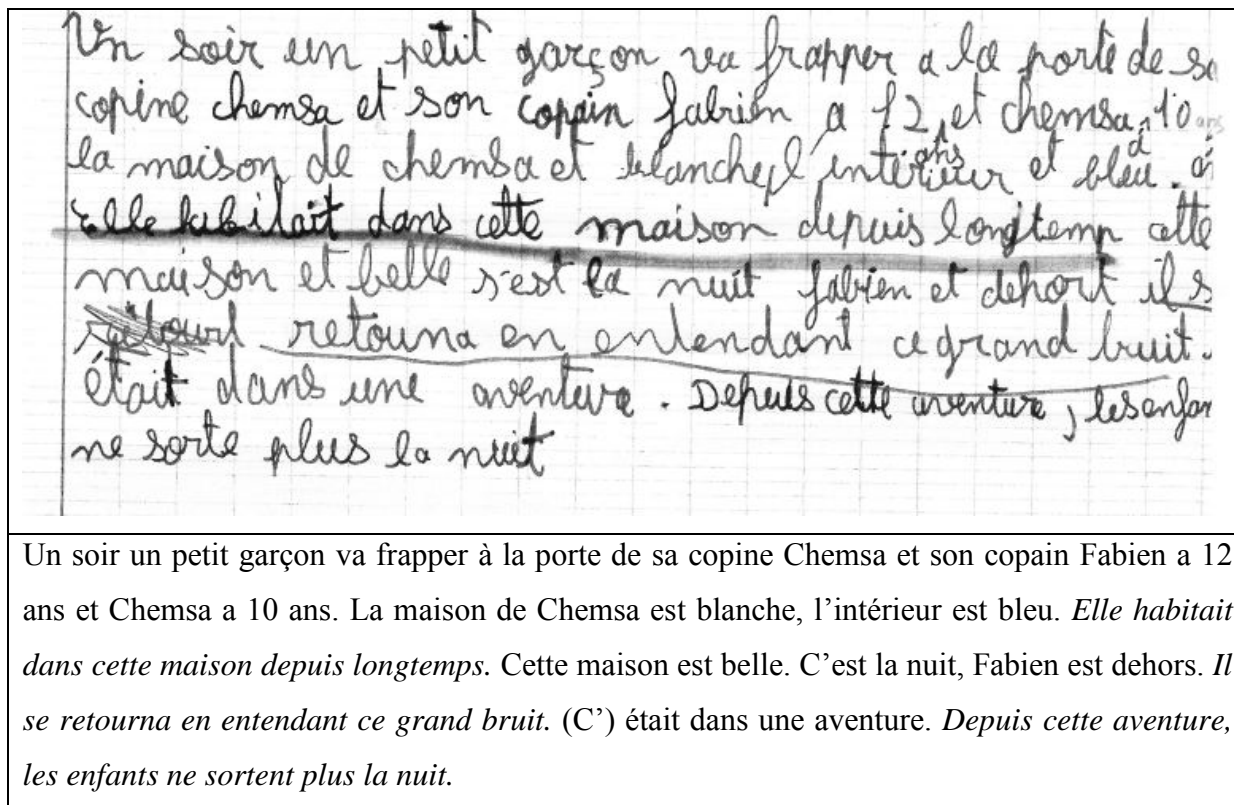 Un soir un petit garçon va frapper a la porte de sa
copine chemsa et son copain fabien a 12 et chemsa 10 ans
ans a
la maison de chemsa et blanche, l'intérieur et bleu.
Elle habitait dans cette maison depuis longtemp cette
maison et belle s'est la nuit fabien et dehort il s
retouna en entendant ce grand bruit.
était dans une aventure. Depuis cette aventure, les enfan
ne sorte plus la nuit
Un soir un petit garçon va frapper à la porte de sa copine Chemsa et son copain Fabien a 12
ans et Chemsa a 10 ans. La maison de Chemsa est blanche, l'intérieur est bleu. Elle habitait
dans cette maison depuis longtemps. Cette maison est belle. C'est la nuit, Fabien est dehors. Il
se retourna en entendant ce grand bruit. (C') était dans une aventure. Depuis cette aventure,
les enfants ne sortent plus la nuit.